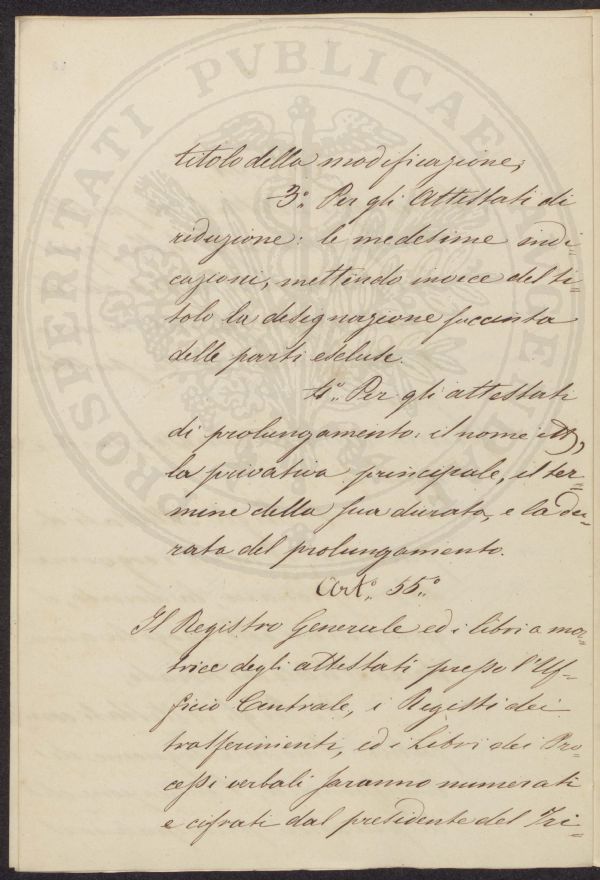 titolo della modificazione;
3.° Per gli Attestati di
riduzione: le medesime indi=
cazioni, mettendo invece del ti=
tolo la designazione succinta
delle parti escluse.
4.° Per gli attestati
di prolungamento: il nome
la privativa principale, il ter=
mine della sua durata, e la du=
rata del prolungamento.
Art.° 55.°
Il Registro Generale ed i libri a ma=
trice degli attestati presso l'Uf=
ficio Centrale, i Registri dei
trasferimenti, ed i Libri dei Pro=
cessi verbali saranno numerati
e cifrati dal presidente del Tri=
PROSPERITATI PVBLICAE